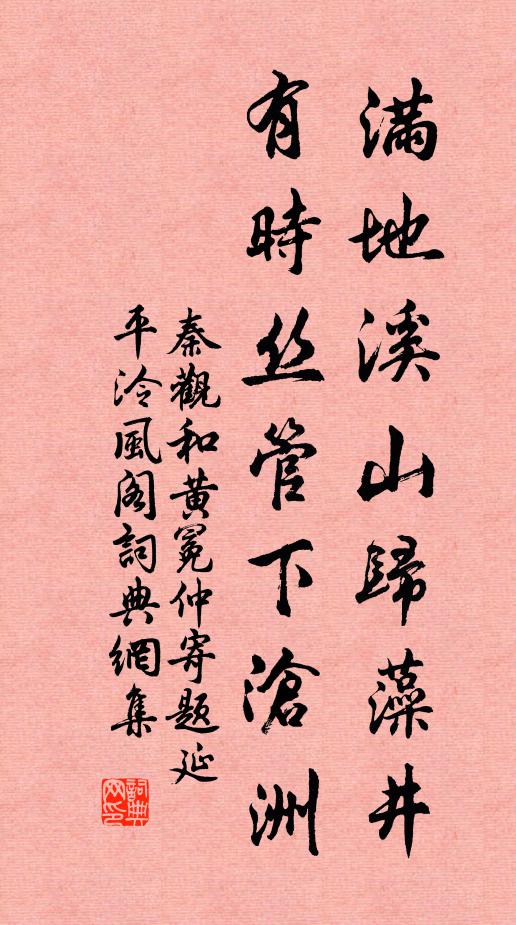 滿地溪山歸藻井
有時丝管下滄洲
秦觀和黃冕仲寄題延
平泠風阁詞典網集
詞典
网印